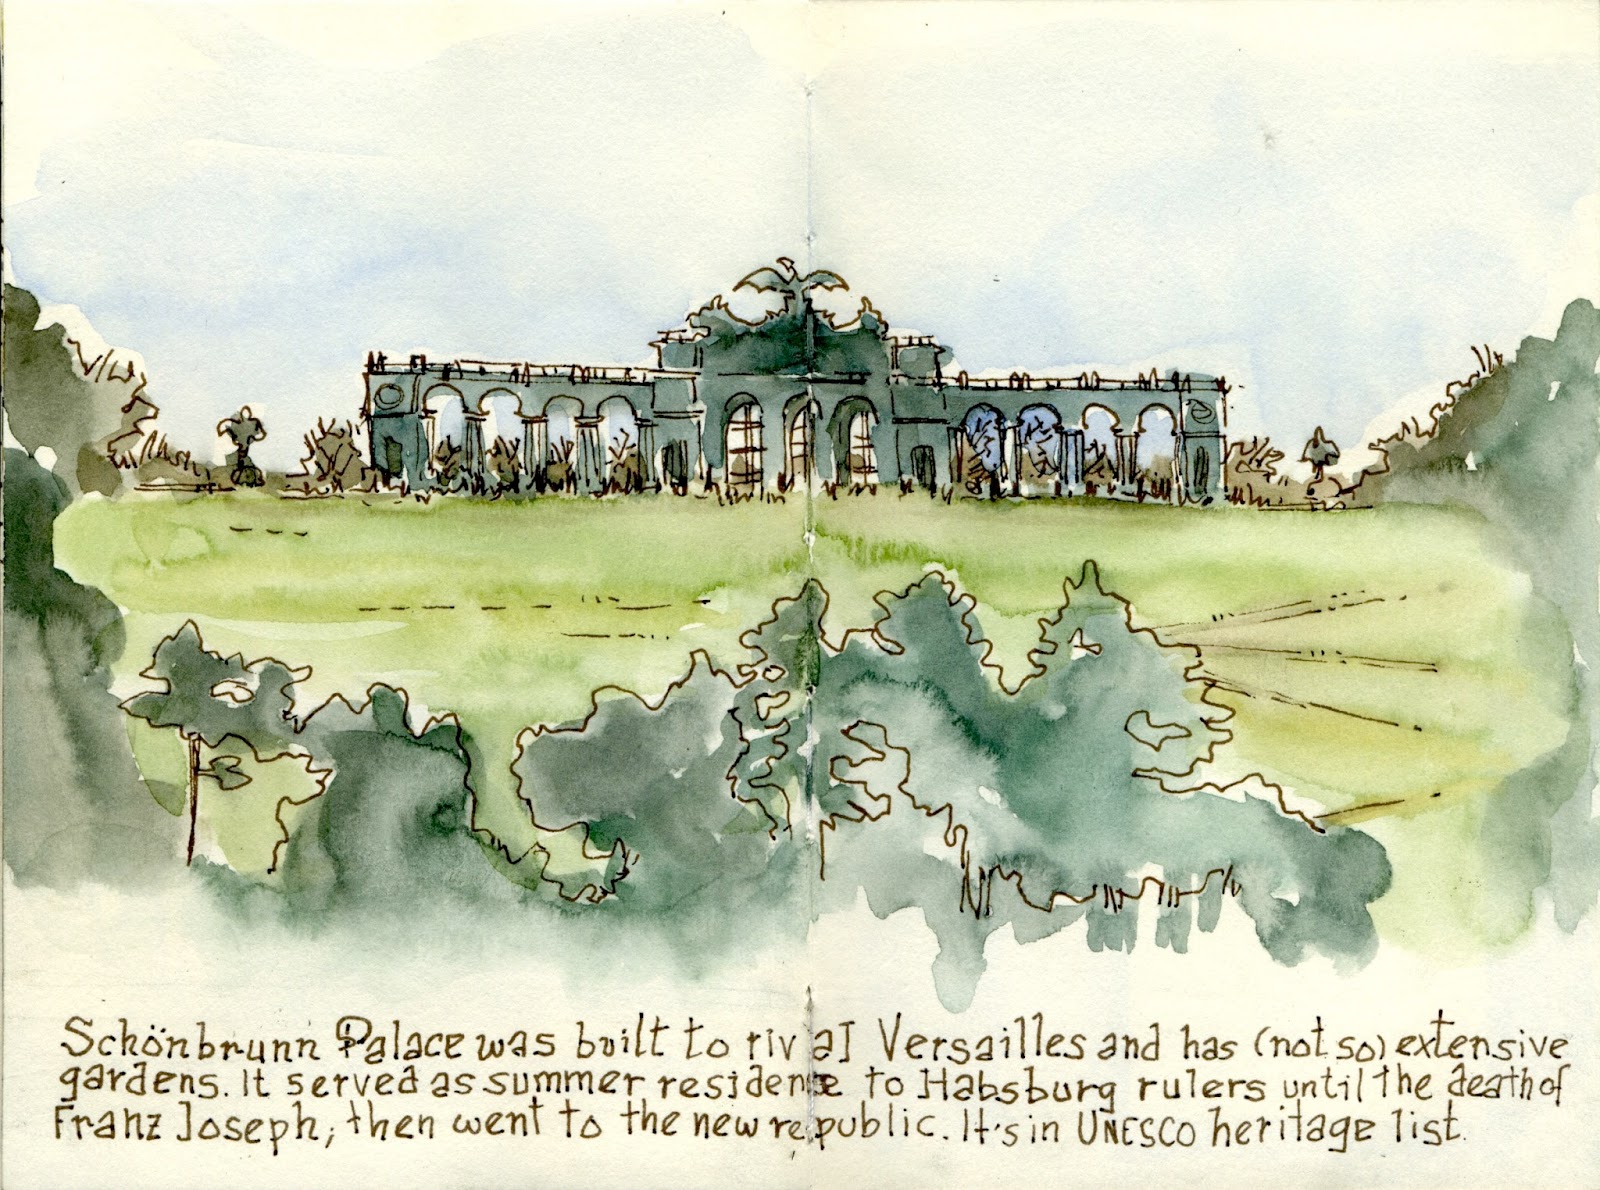 Schönbrunn Palace was built to rival Versailles and has (not so) extensive
gardens. It served as summer residence to Habsburg rulers until the death of
Franz Joseph, then went to the new republic. It's in UNESCO heritage list.